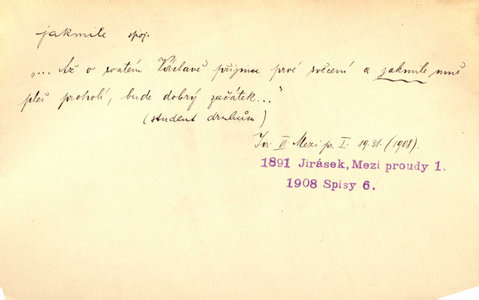 jakmile spoj.
„... Až o svatém Václavě přijmu prvé svěcení a jakmile mně
pleš proholí, bude dobrý začátek..."
(student druhům)
Jir. VI Mezi pr. I. 19.31. (1908).
1891 Jirásek, Mezi proudy 1.
1908 Spisy 6.